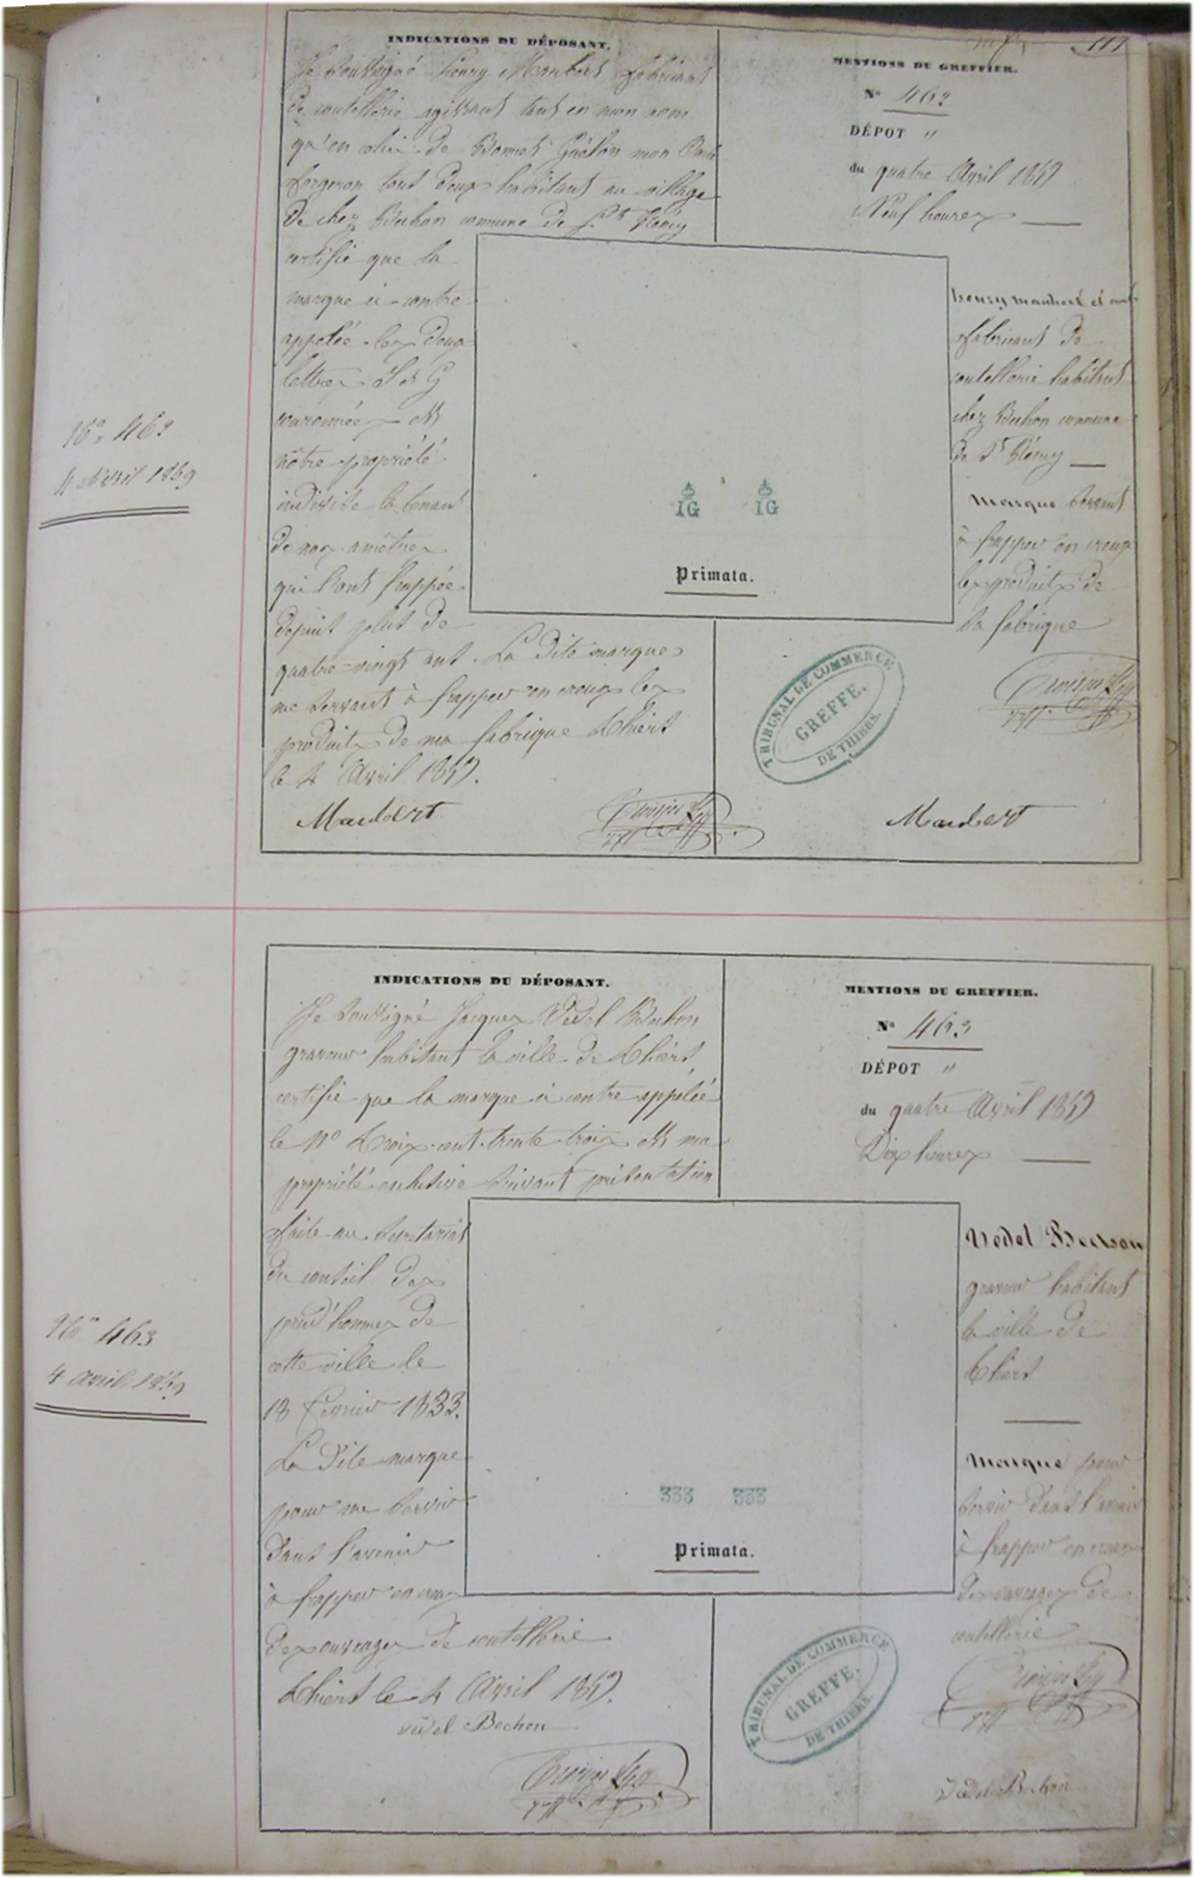 117
INDICATIONS DU DÉPOSANT.
Je soussigné henry Maubert fabricant
de coutellerie agissant tant en mon nom
qu'en celui de Bonnet Guélon mon Oncle
forgeron tout deux habitant au village
de chez Bechon commune de St Rémy
certifie que la
marque ci contre
appelée les deux
lettres I et G
couronnées est
nôtre propriété
indivise la tenant
de nos ancêtres
qui l'ont frappée
depuis plus de
quatre-vingt ans. La dite marque
me servant à frapper en creux les
produits de ma fabrique Thiers
le 4 Avril 1859.
Maubert
MENTIONS DU GREFFIER.
No 462
DÉPOT "
du quatre Avril 1859
Neuf heures
henry maubert et
fabricant de
coutellerie habitant
chez Bechon commune
de St Rémy
Marque servant
à frapper en creux
les produits de
sa fabrique
Maubert
IG IG
Primata.
TRIBUNAL DE COMMERCE
GREFFE.
DE THIERS.
No 462
4 avril 1859
INDICATIONS DU DÉPOSANT.
Je soussigné Jacques Vedel Bechon
graveur habitant la ville de Thiers
certifie que la marque ci contre appelée
le No trois cent trente trois est ma
propriété exclusive suivant présentation
faite au secrétariat
du conseil des
prud'hommes de
cette ville le
18 février 1833.
La dite marque
pour me servir
dans l'avenir
à frapper en creux
des ouvrages de coutellerie
Thiers le 4 Avril 1859.
védel Bechon
MENTIONS DU GREFFIER.
No 463
DÉPOT "
du quatre Avril 1859
Dix heures
Vedel Bechon
graveur habitant
la ville de
Thiers
Marque pour
servir dans l'avenir
à frapper en creux
des ouvrages de
coutellerie
Védel Bechon
333 333
Primata.
TRIBUNAL DE COMMERCE
GREFFE.
DE THIERS.
No 463
4 avril 1859